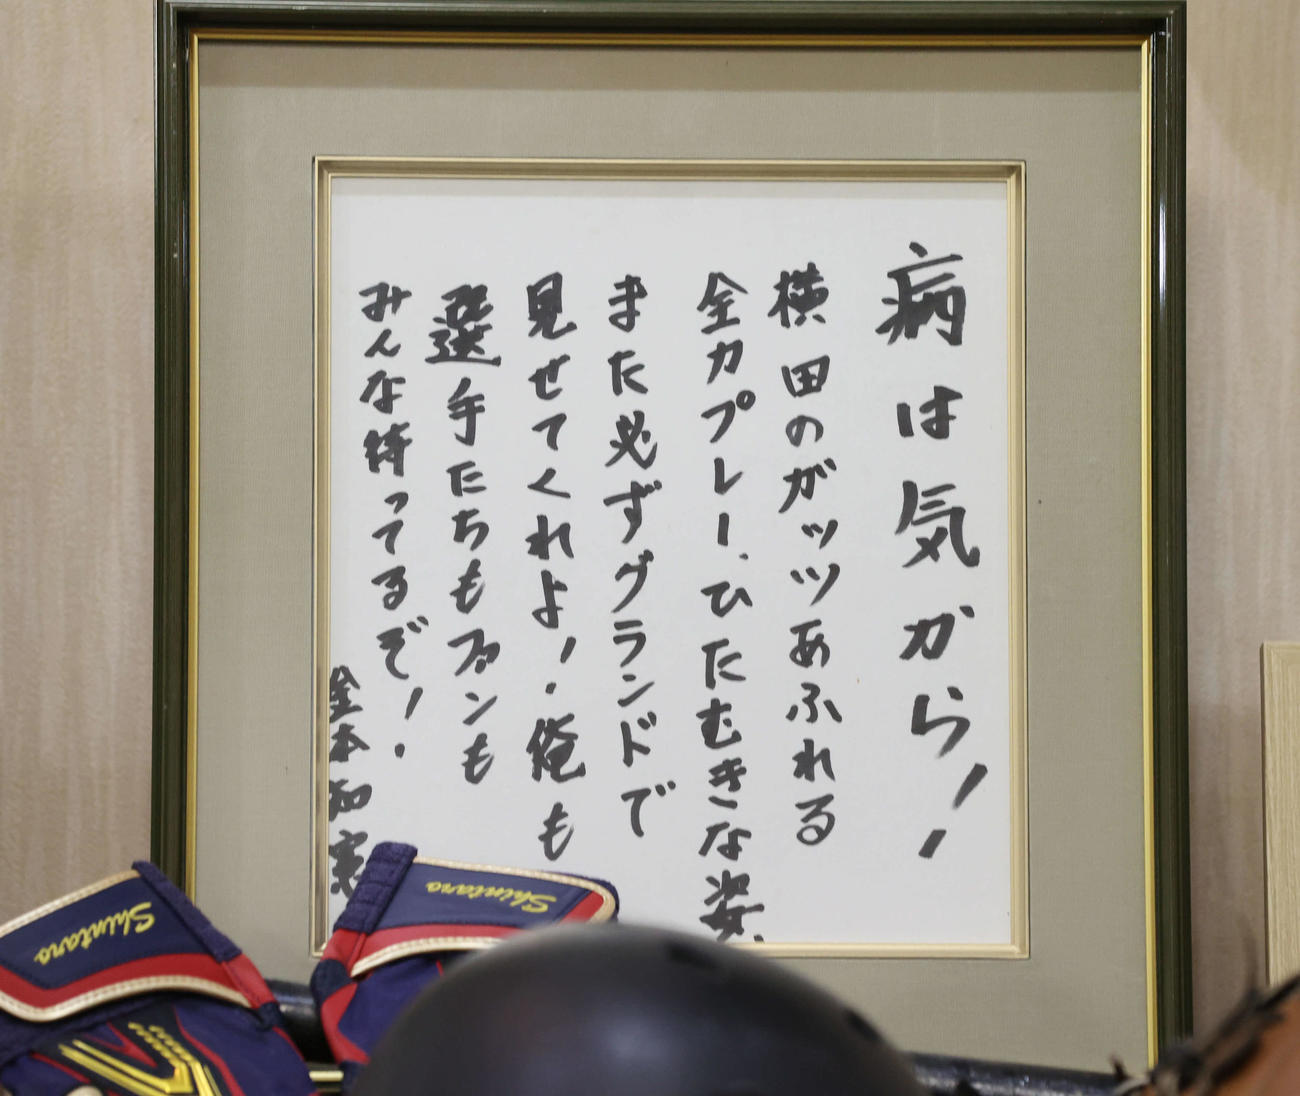 病は気から!
横田のガッツあふれる
全力プレー、ひたむきな姿、
また必ずグランドで
見せてくれよ!俺も
選手たちもファンも
みんな待ってるぞ!
金本知憲
Shintaro
Shintaro